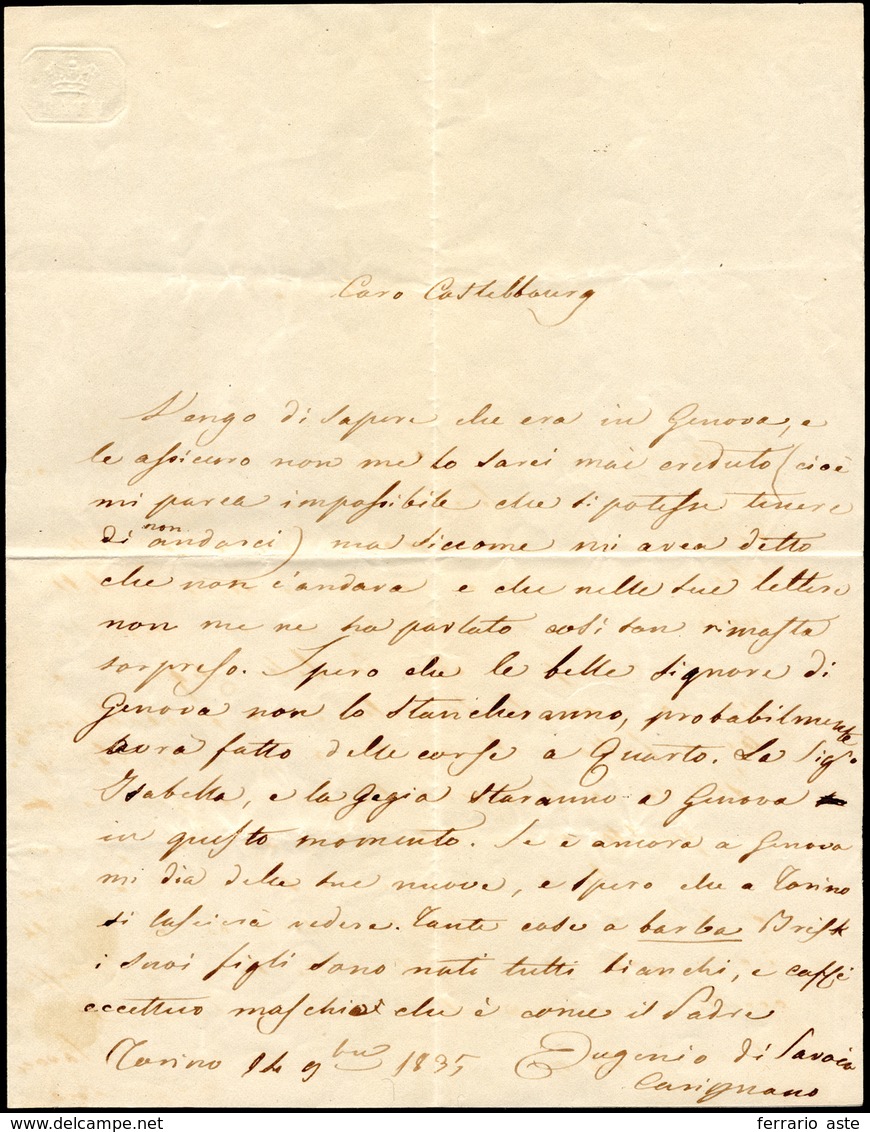 BATH
Caro Castelbourg
Vengo di sapere che era in Genova, e
le assicuro non me lo sarei mai creduto (cioè
mi parea impossibile che si potesse tenere
di non andarci) ma siccome mi avea detto
che non c'andava e che nelle sue lettere
non me ne ha parlato così son rimasto
sorpreso. Spero che le belle signore di
Genova non lo stancheranno, probabilmente
avrà fatto delle corse a Quarto. La Sig.a
Isabella, e la Gegia staranno a Genova
in questo momento. Se è ancora a Genova
mi dia delle sue nuove, e spero che a Torino
si lascierà vedere. Tante cose a barba Brisk
i suoi figli sono nati tutti bianchi, e caffè
eccettuo maschio che è come il Padre
Torino 14 9bre 1835 Eugenio di Savoia
Carignano
ferrario aste